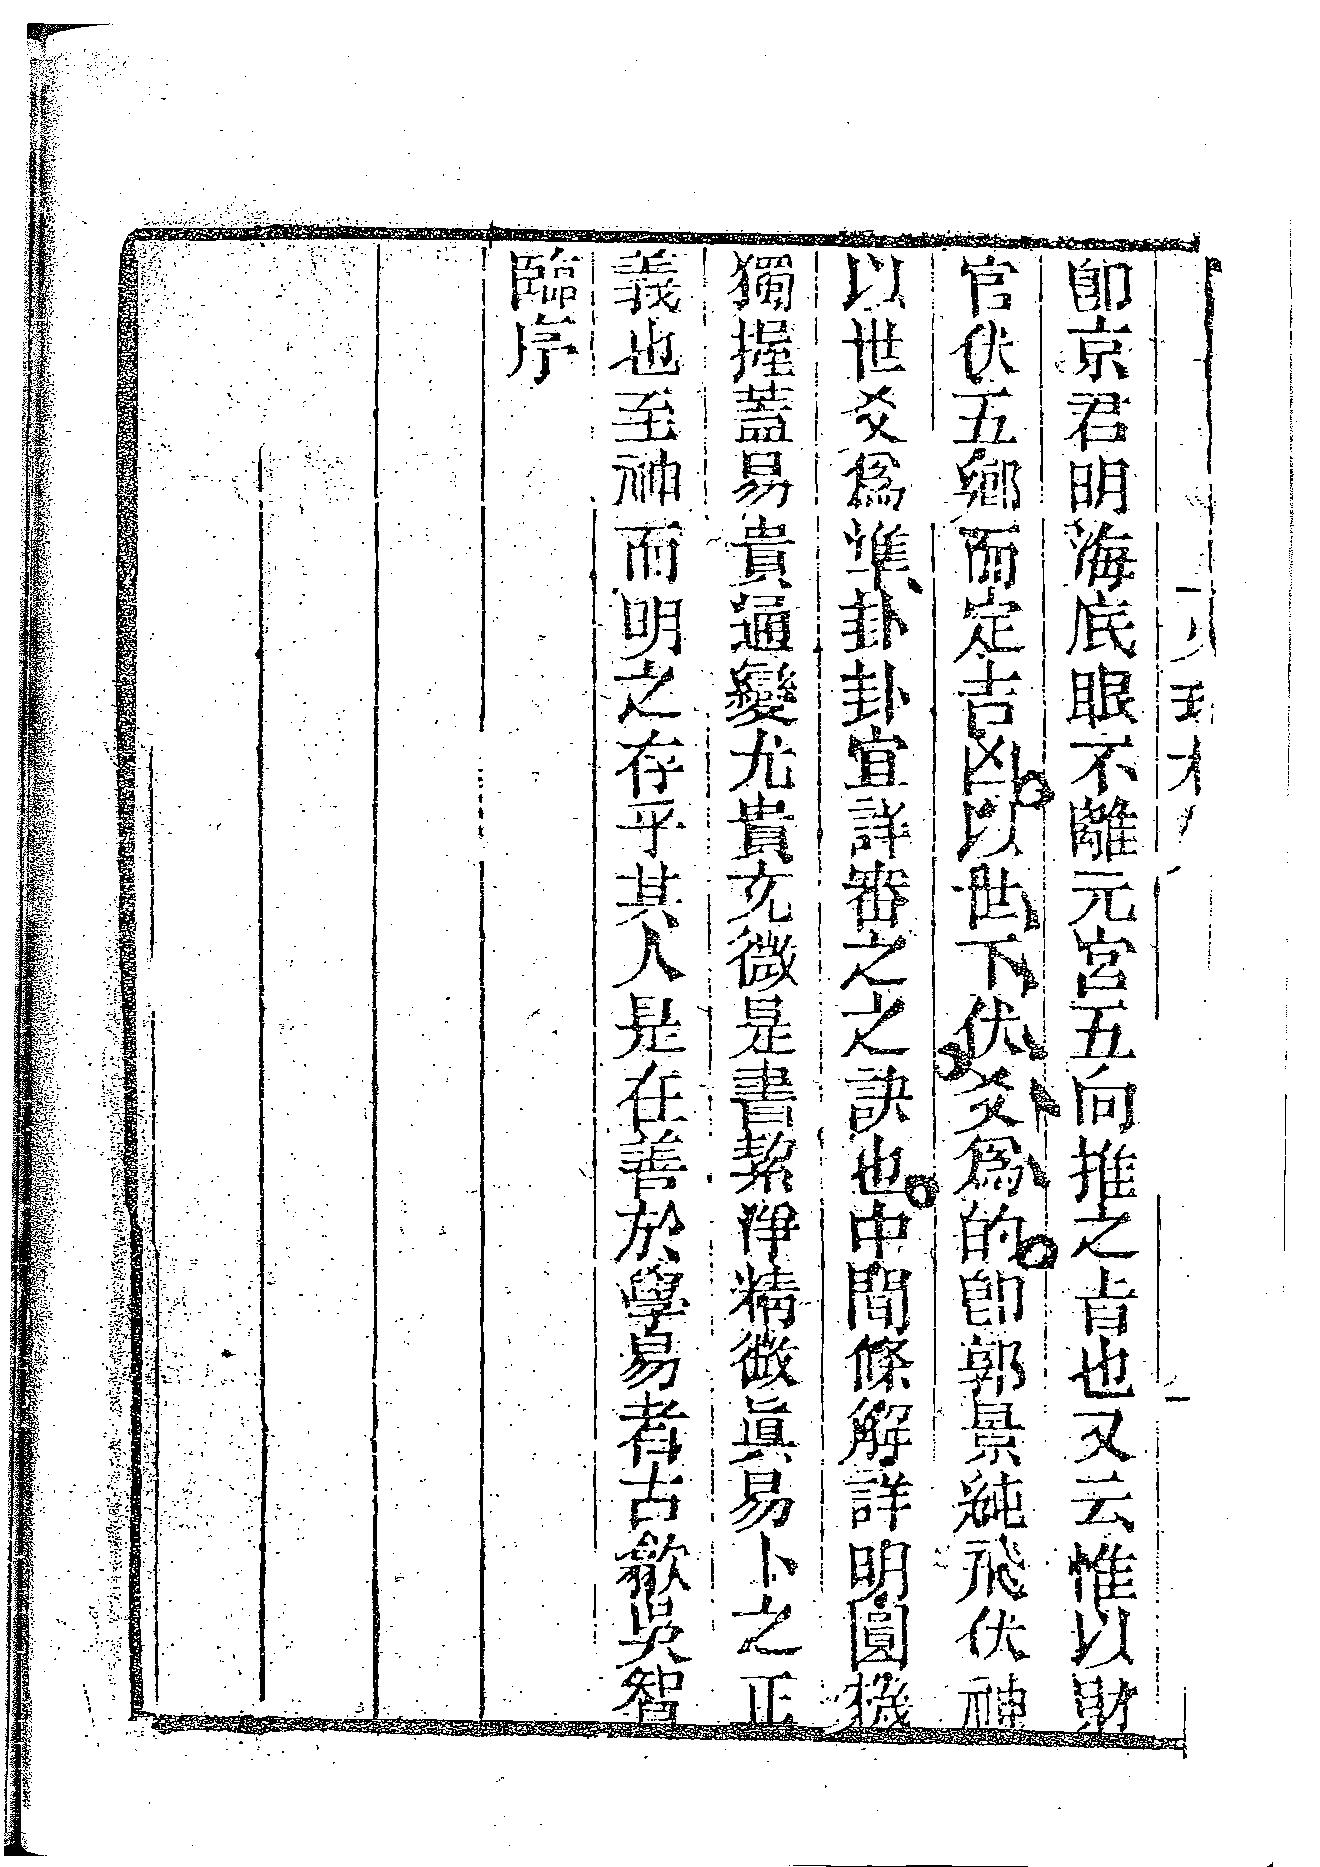 卽京君明海底眼不離元宮五向推之旨也又云惟以財
官伏五鄉而定吉凶以世下伏爻爲的卽郭景純飛伏神
以世爻爲準卦卦宜詳審之之訣也中間條解詳明圓機
獨握蓋易貴通變尤貴玄微是書絜淨精微眞易卜之正
義也至神而明之存乎其人是在善於學易者古歙吳智
臨序